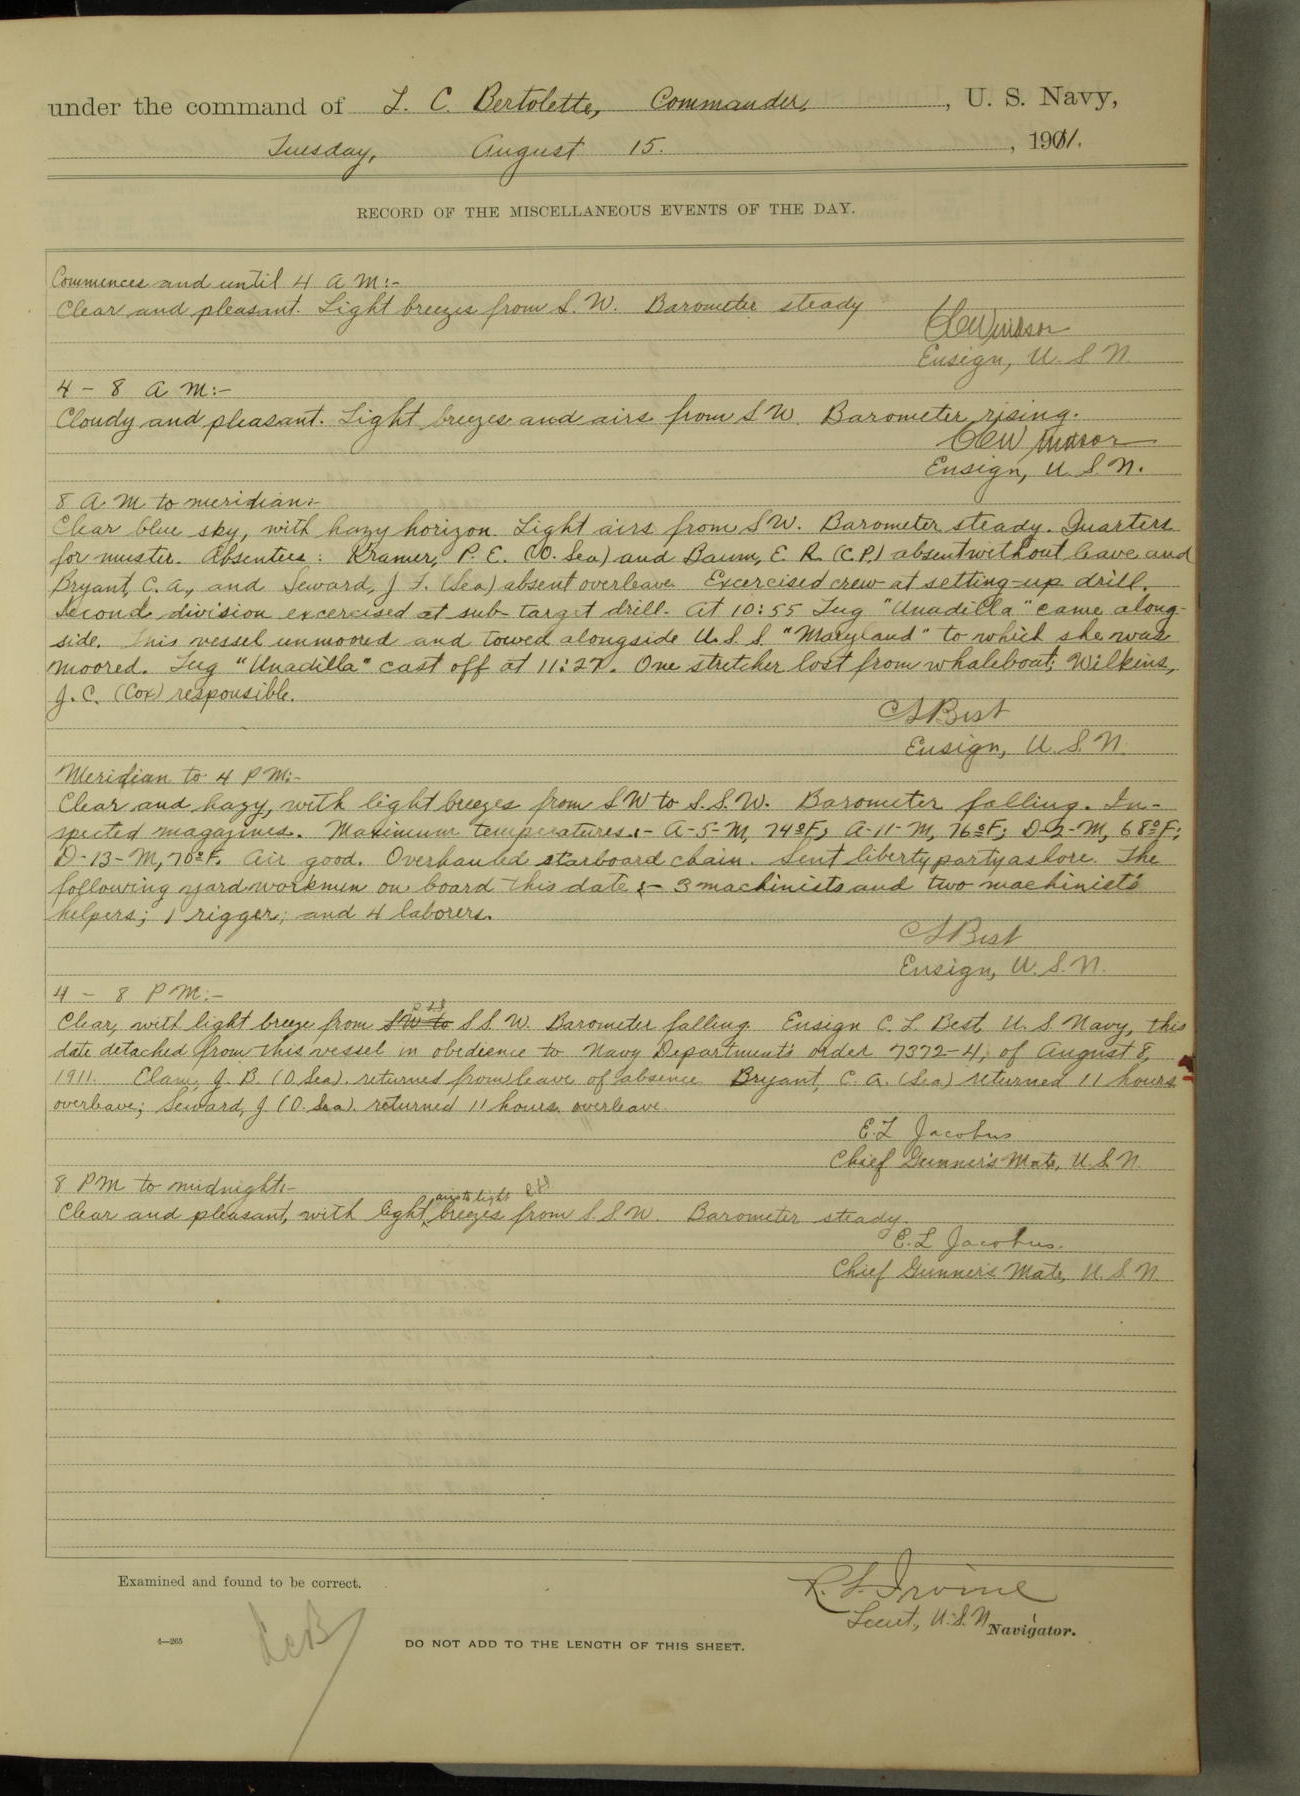 under the command of L. C. Bertolette, Commander, U. S. Navy,
Tuesday, August 15. , 1911.
RECORD OF THE MISCELLANEOUS EVENTS OF THE DAY.
Commences and until 4 A M:-
Clear and pleasant. Light breezes from S. W. Barometer steady
C C Windsor
Ensign, U. S N.
4 - 8 A M:-
Cloudy and pleasant. Light breezes and airs from S W. Barometer rising.
C C Windsor
Ensign, U. S. N.
8 A M to meridian:-
Clear blue sky, with hazy horizon. Light airs from S W. Barometer steady. Quarters
for muster. Absentees: Kramer, P. E. (O. Sea) and Baum, E. R. (C.P.) absent without leave and
Bryant, C. A., and Seward, J. F. (Sea) absent overleave. Excercised crew at setting-up drill.
Second division excercised at sub-target drill. At 10:55 Tug "Unadilla" came along-
side. This vessel unmoored and towed alongside U. S. S. "Maryland" to which she was
moored. Tug "Unadilla" cast off at 11:27. One stretcher lost from whaleboat; Wilkins,
J. C. (Cox) responsible.
C L Best
Ensign, U. S. N.
Meridian to 4 P M:-
Clear and hazy, with light breezes from S W to S. S. W. Barometer falling. In-
spected magazines. Maximum temperatures:- A-5-M, 74°F; A-11-M, 76°F; D-2-M, 68°F;
D-13-M, 70°F. Air good. Overhauled starboard chain. Sent liberty party ashore. The
following yard workmen on board this date:- 3 machinists and two machinist's
helpers; 1 rigger; and 4 laborers.
C L Best
Ensign, U. S. N.
4 - 8 P M:-
Clear, with light breeze from SW to S S W. Barometer falling. Ensign C. L. Best U. S Navy, this
date detached from this vessel in obedience to Navy Department's order 7372-4, of August 8,
1911. Clam, J. B. (O Sea). returned from leave of absence. Bryant, C. A. (Sea) returned 11 hours
overleave; Seward, J (O. Sea). returned 11 hours overleave.
E. L Jacobus
Chief Gunner's Mate, U. S. N.
8 P M to midnight:-
Clear and pleasant, with light airs to light breezes from S. S. W. Barometer steady.
E. L Jacobus.
Chief Gunner's Mate, U. S. N.
Examined and found to be correct.
R. L. Irvine
Lieut, U. S. N. Navigator.
4—265
DO NOT ADD TO THE LENGTH OF THIS SHEET.